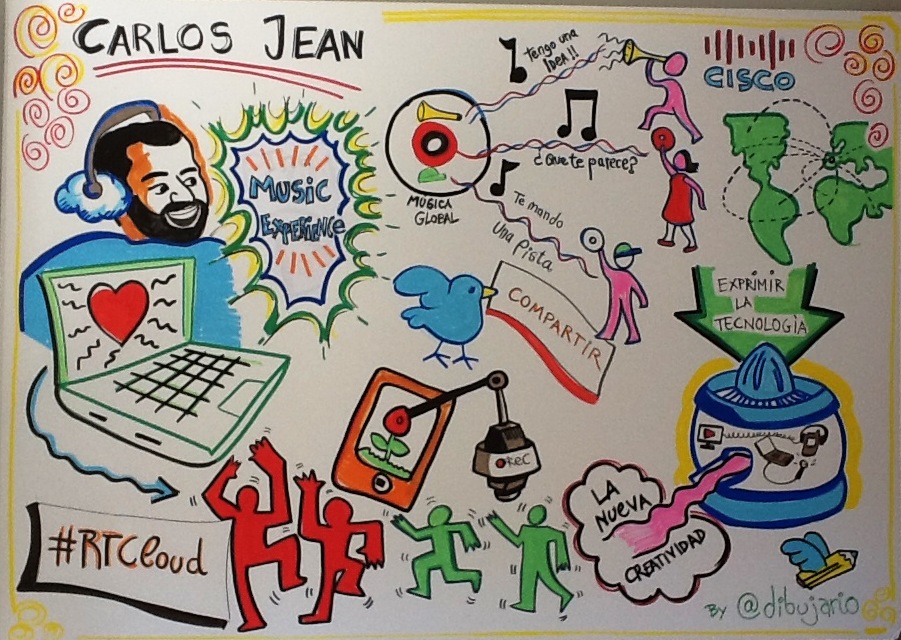 CARLOS JEAN
CISCO
Tengo una
IDEA!!
MUSIC
EXPERIENCE
¿Que te parece?
MÚSICA
GLOBAL
Te mando
Una Pista
COMPARTIR
EXPRIMIR
LA
TECNOLOGÍA
REC
LA
NUEVA
CREATIVIDAD
#RTCloud
BY @dibujario